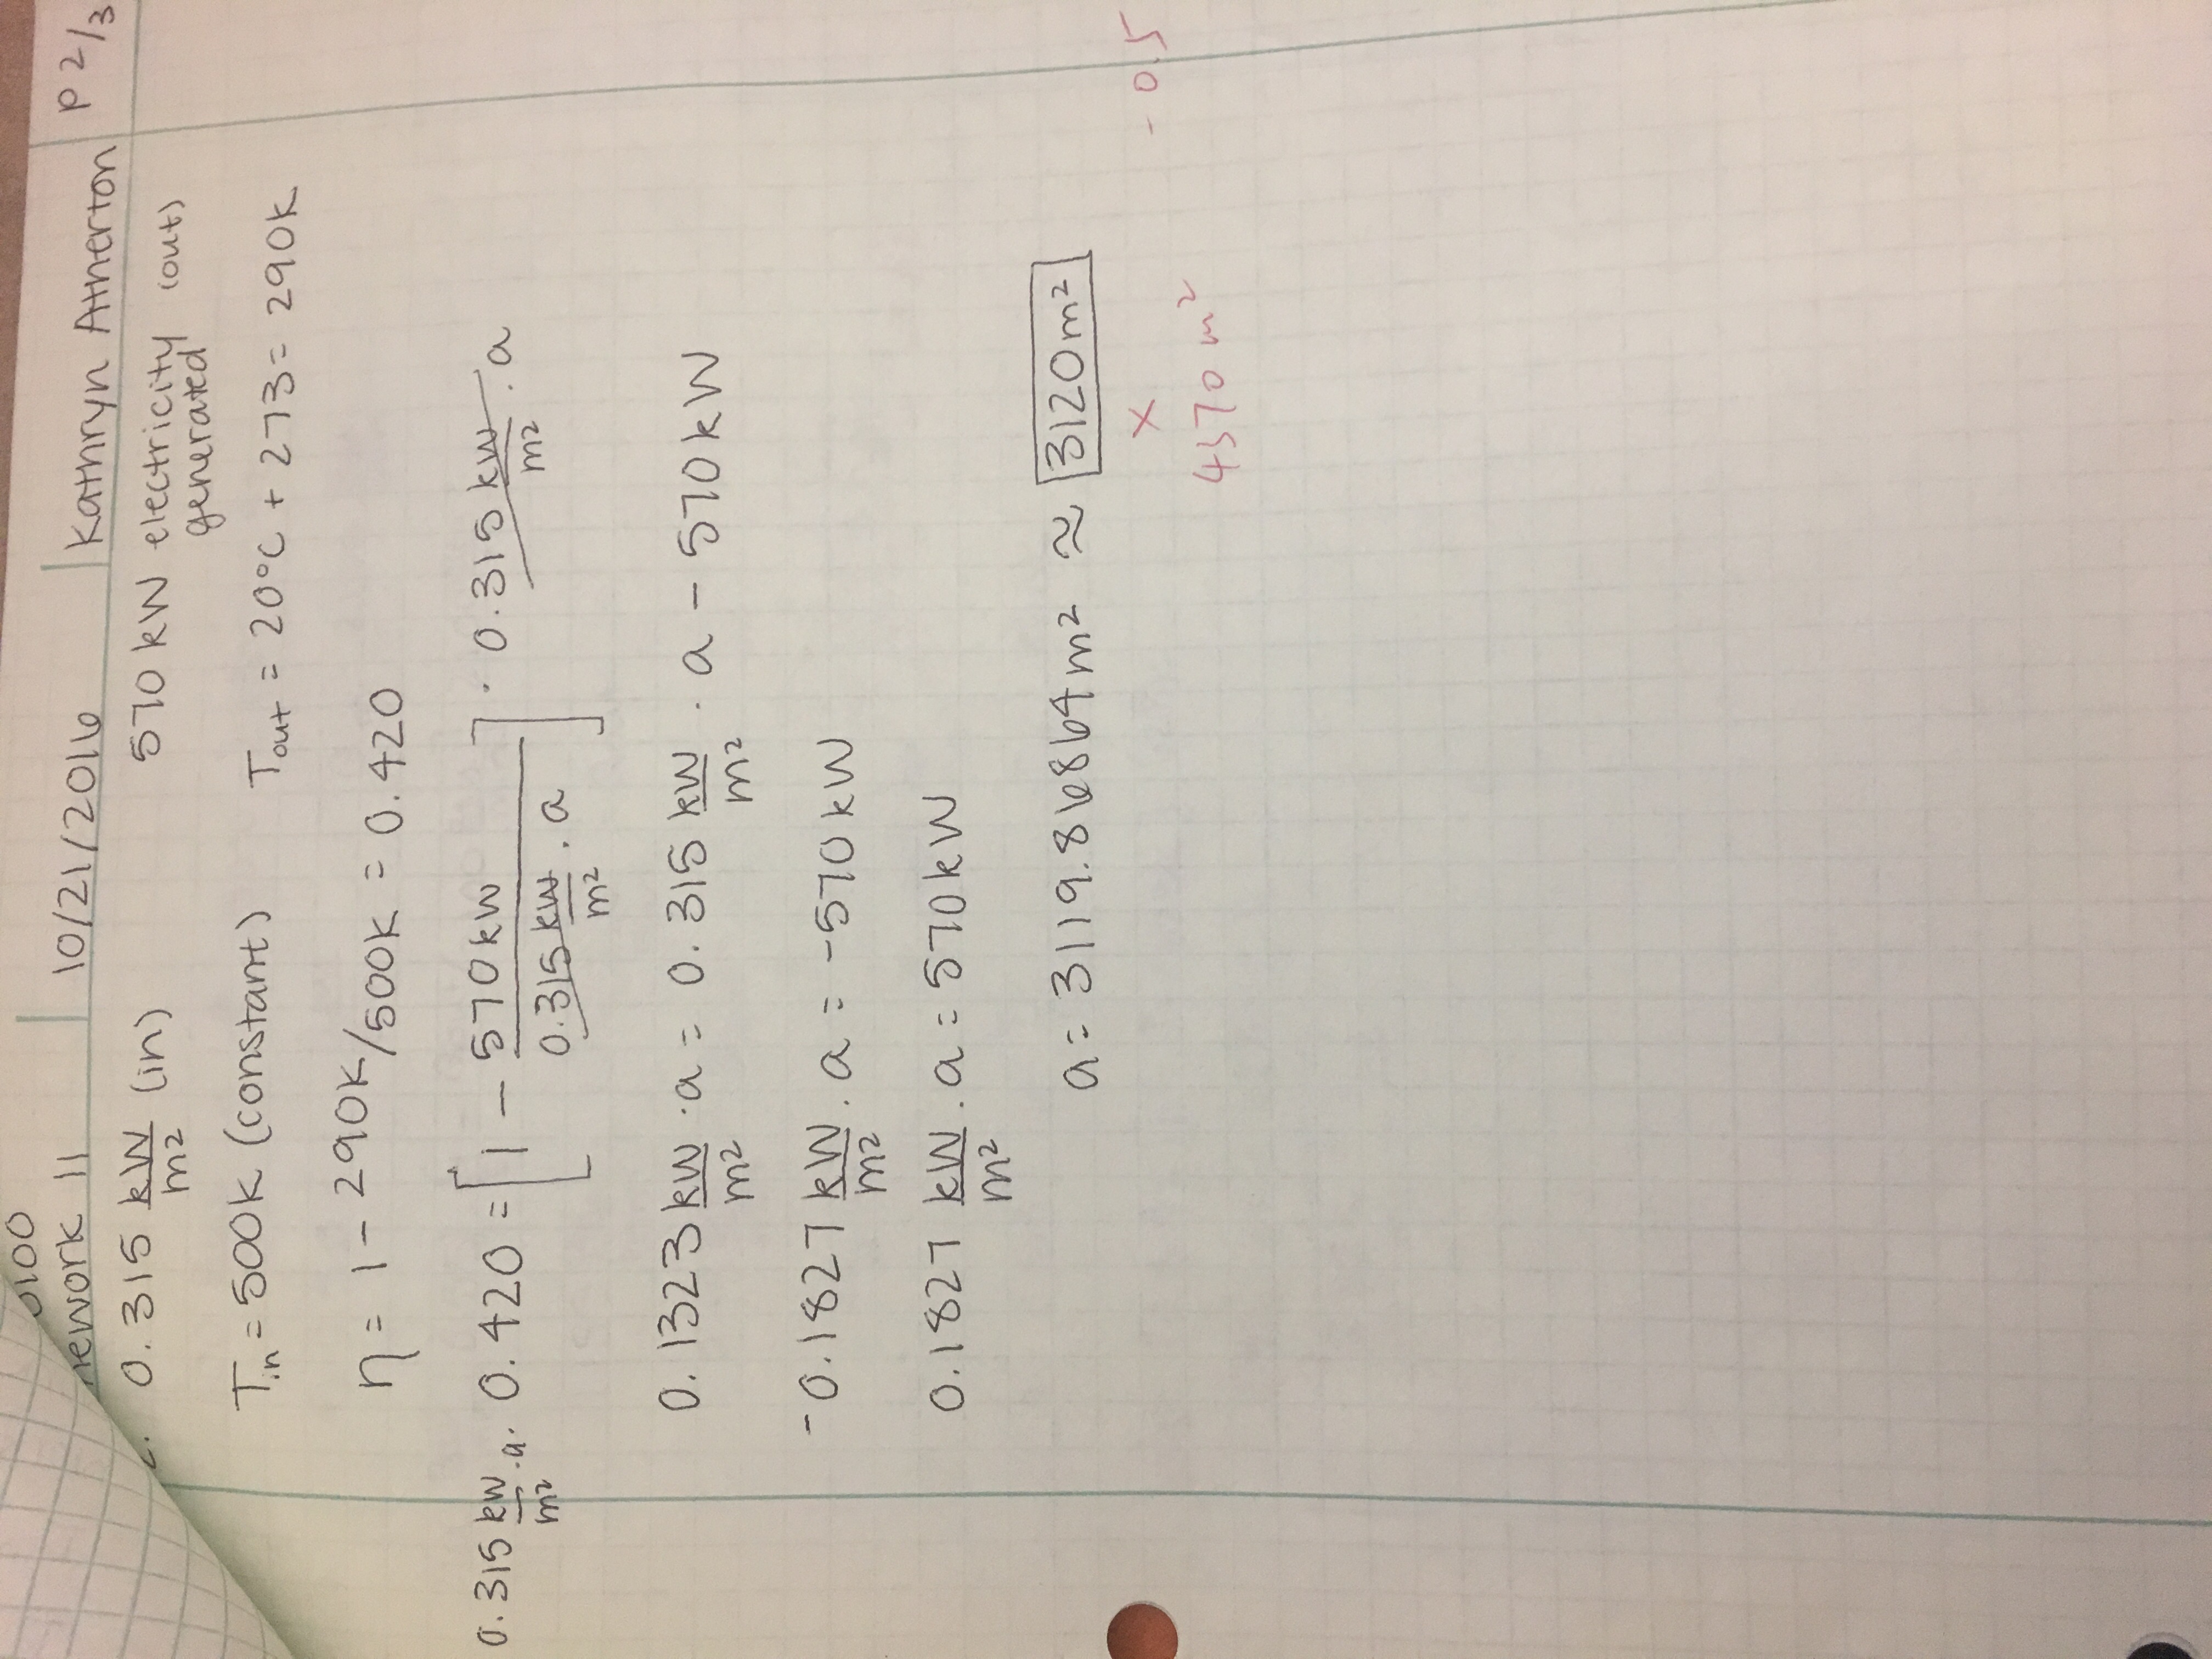 0100
nework 11 10/21/2016 Kathryn Atherton P 2/3
2. 0.315 kW/m² (in) 570 kW electricity generated (out)
Tin = 500K (constant) Tout = 20°C + 273 = 290K
η = 1 - 290K/500K = 0.420
0.315 kW/m² · a · 0.420 = [1 - 570 kW / 0.315 kW/m² · a] · 0.315 kW/m² · a
0.1323 kW/m² · a = 0.315 kW/m² · a - 570 kW
-0.1827 kW/m² · a = -570 kW
0.1827 kW/m² · a = 570 kW
a = 3119.86864 m² ≈ 3120 m²
× - 0.5
4370 m²